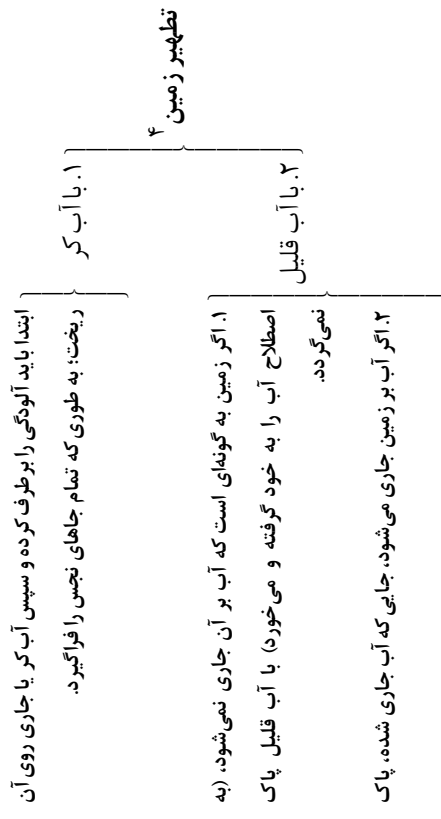 تطهیر زمین ۴
۱. با آب کر
ابتدا باید آلودگی را برطرف کرده و سپس آب کر یا جاری روی آن
ریخت؛ به طوری که تمام جاهای نجس را فراگیرد.
۲. با آب قلیل
۱. اگر زمین به گونه‌ای است که آب بر آن جاری نمی‌شود، (به
اصطلاح آب را به خود گرفته و می‌خورد) با آب قلیل پاک
نمی‌گردد.
۲. اگر آب بر زمین جاری می‌شود، جایی که آب جاری شده، پاک